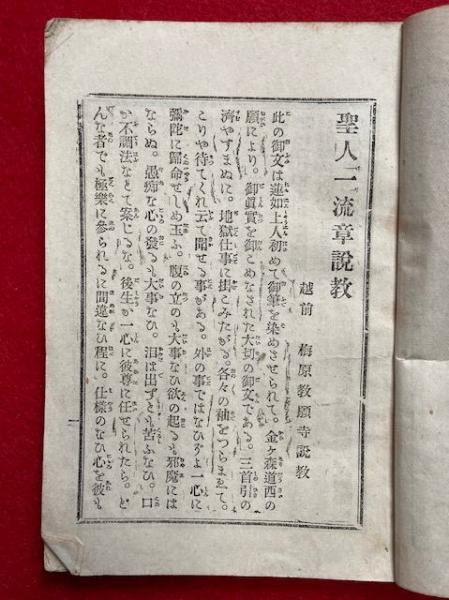 聖人一流章説教
越前　梅原教願寺説教
此の御文は蓮如上人初めて御筆を染めさせられて。金ヶ森道西の
願により。御眞實を御こめなされた大切の御文である。三首引の
濟やすまぬに。地獄仕事に掛こみたがる。各々の袖をつらまゑて。
こりや待てくれ云て聞せる事がある。外の事ではなひぞよ一心に
彌陀に歸命せしめ玉ふ。腹の立のも大事なひ欲の起るも邪魔には
ならぬ。愚痴な心の發るも大事なひ。泪は出ずとも苦ふなひ。口
が不調法なとて案じるな。後生が一心に彼尊に任せられたら。ど
んな者でも極樂に參られるに間違なひ程に。仕樣のなひ心を彼も